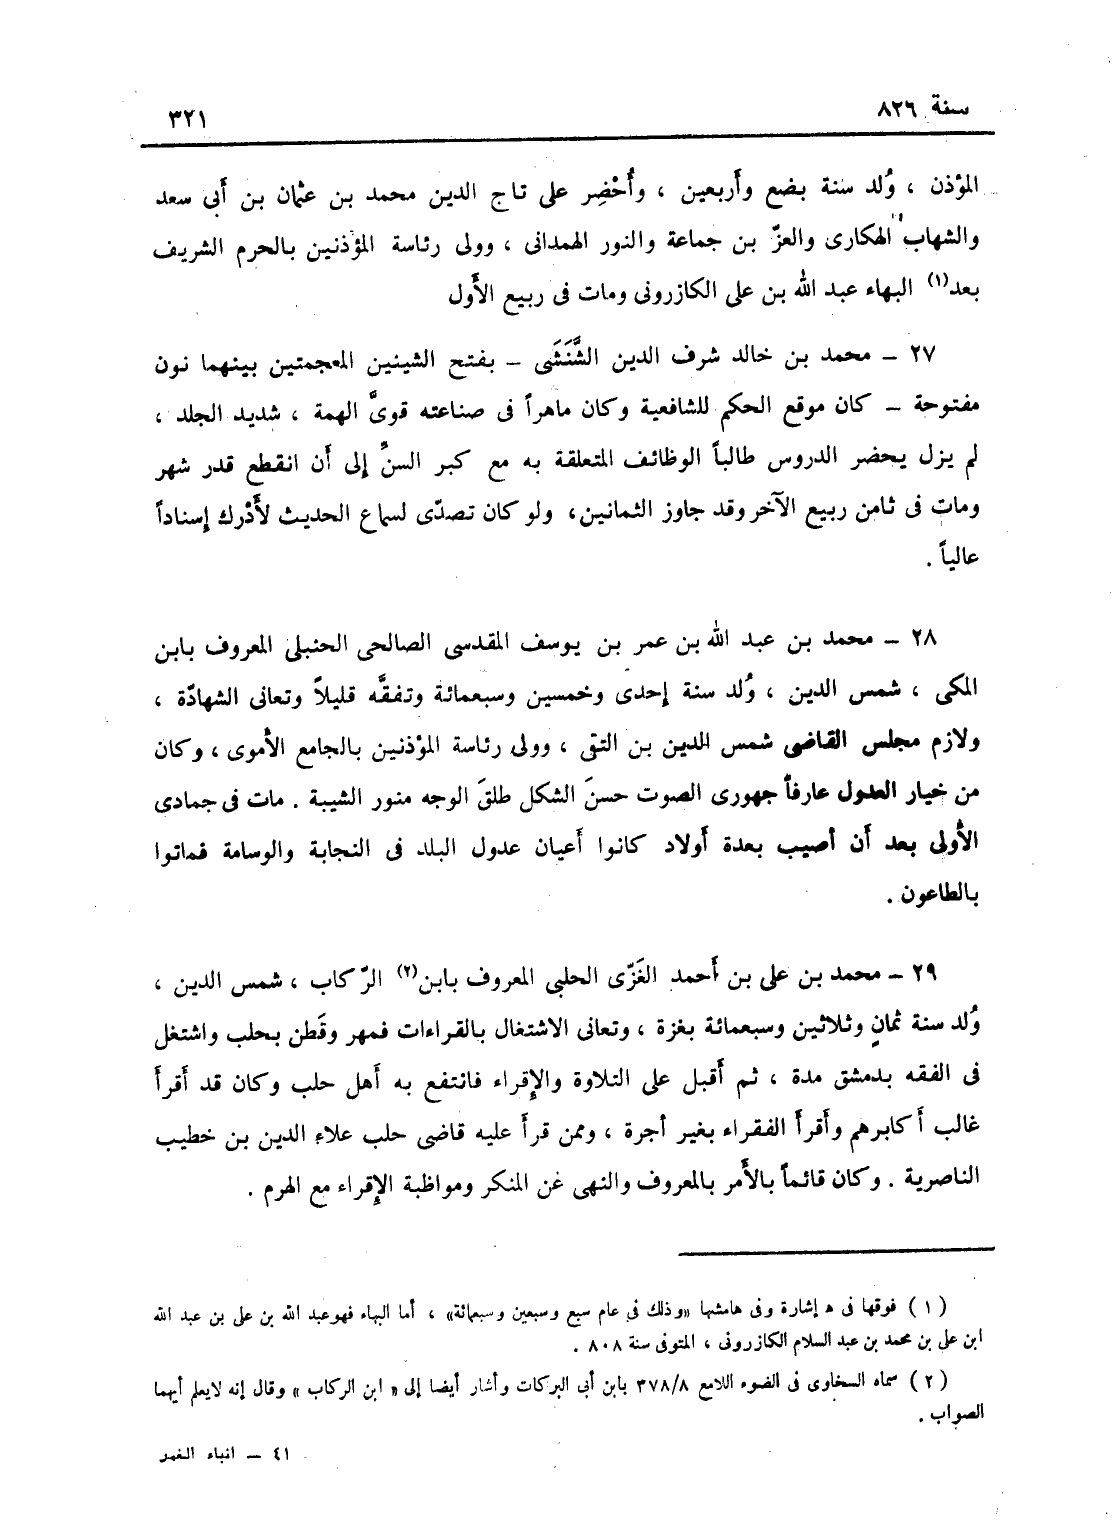 سنة ٨٢٦
٣٢١
المؤذن ، وُلد سنة بضع وأَربعين ، وأُحْضِر على تاج الدين محمد بن عثمان بن أَبى سعد
والشهاب الهكارى والعزّ بن جماعة والنور الهمدانى ، وولى رئاسة المؤذنين بالحرم الشريف
بعد(١) البهاء عبد الله بن على الكازرونى ومات فى ربيع الأَول
٢٧ – محمد بن خالد شرف الدين الشَّنَشَى – بفتح الشينين المعجمتين بينهما نون
مفتوحة – كان موقع الحكم للشافعية وكان ماهراً فى صناعته قوىَّ الهمة ، شديد الجلد ،
لم يزل يحضر الدروس طالباً الوظائف المتعلقة به مع كبر السنِّ إلى أَن انقطع قدر شهر
ومات فى ثامن ربيع الآخر وقد جاوز الثمانين، ولو كان تصدّى لسماع الحديث لأَدْرك إسناداً
عالياً .
٢٨ – محمد بن عبد الله بن عمر بن يوسف المقدسى الصالحى الحنبلى المعروف بابن
المكى ، شمس الدين ، وُلد سنة إحدى وخمسين وسبعمائة وتفقَّه قليلاً وتعانى الشهادّة ،
ولازم مجلس القاضى شمس الدين بن التقى ، وولى رئاسة المؤذنين بالجامع الأُموى ، وكان
من خيار العدول عارفاً جهورى الصوت حسنَ الشكل طلقَ الوجه منور الشيبة . مات فى جمادى
الأُولى بعد أَن أصيب بعدة أَولاد كانوا أَعيان عدول البلد فى النجابة والوسامة فماتوا
بالطاعون .
٢٩ – محمد بن على بن أَحمد الغَزّى الحلبى المعروف بابن(٢) الرّكاب ، شمس الدين ،
وُلد سنة ثمانٍ وثلاثين وسبعمائة بغزة ، وتعانى الاشتغال بالقراءات فمهر وقَطن بحلب واشتغل
فى الفقه بدمشق مدة ، ثم أَقبل على التلاوة والإِقراء فانتفع به أَهل حلب وكان قد أَقرأَ
غالب أَكابرهم وأَقرأَ الفقراء بغير أجرة ، وممن قرأَ عليه قاضى حلب علاء الدين بن خطيب
الناصرية . وكان قائماً بالأَمر بالمعروف والنهى عن المنكر ومواظبة الإِقراء مع الهرم .
(١) فوقها فى ه إشارة وفى هامشها «وذلك فى عام سبع وسبعين وسبعمائة» ، أما البهاء فهو عبد الله بن على بن عبد الله
ابن على بن محمد بن عبد السلام الكازرونى ، المتوفى سنة ٨٠٨ .
(٢) سماه السخاوى فى الضوء اللامع ٣٧٨/٨ بابن أبى البركات وأشار أيضا إلى « ابن الركاب » وقال إنه لايعلم أيهما
الصواب .
٤١ – انباء الغمر